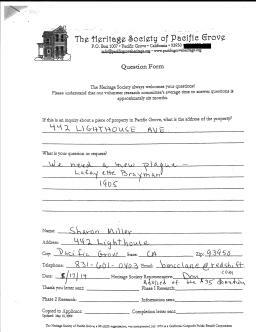 The Heritage Society of Pacific Grove
P.O. Box 1007 • Pacific Grove • California • 93950
info@pacificgroveheritage.org • www.pacificgroveheritage.org
Question Form
The Heritage Society always welcomes your questions!
Please understand that our volunteer research committee's average time to answer questions is
approximately six months.
If this is an inquiry about a piece of property in Pacific Grove, what is the address of the property?
442 LIGHTHOUSE AVE
What is your question or request?
We need a new plaque -
Lafayette Brayman
1905
Name: Sharon Miller
Address: 442 Lighthouse
City: Pacific Grove State: CA Zip: 93950
Telephone: 831-601-0403 Email:
Date: 8/17/14 Heritage Society Representative: Don
Advised of the $35 donation
Thank you letter sent: Phase I Research:
Phase 2 Research: Information sent:
Copied to Applicant: Completion letter sent: